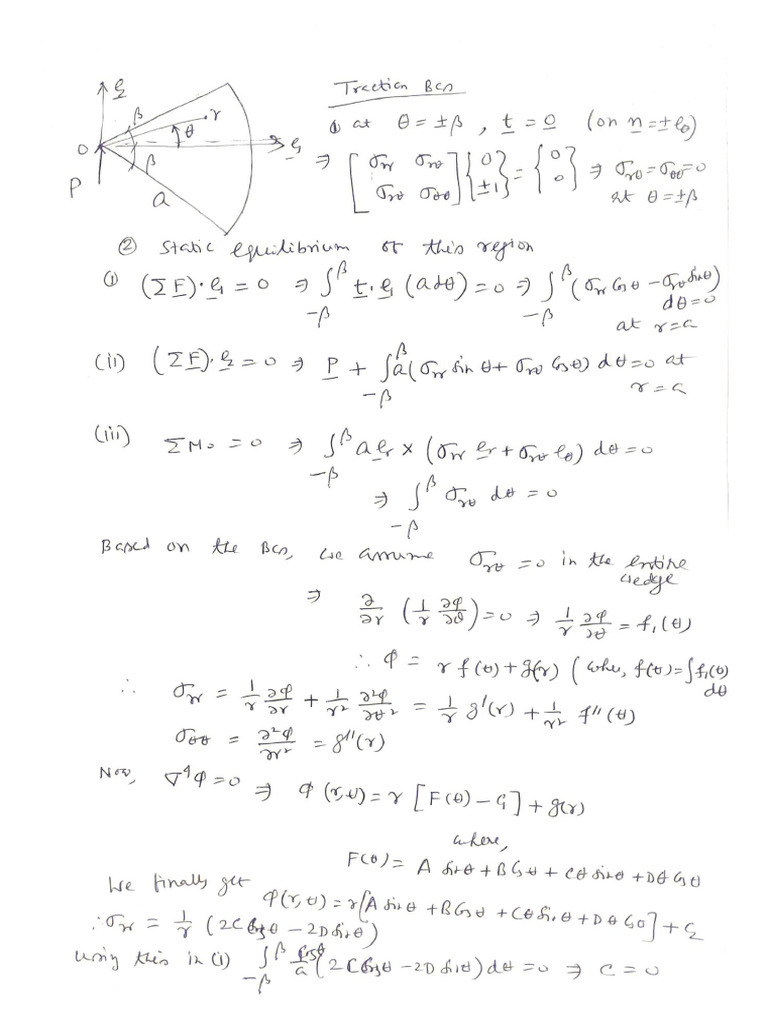 e̲₂
β
r
θ
O
e̲₁
β
P
a
Traction BCs
① at θ = ±β , t̲ = 0̲ (on n̲ = ± e̲_θ)
⇒ [σ_rr σ_rθ; σ_rθ σ_θθ] {0; ±1} = {0; 0} ⇒ σ_rθ = σ_θθ = 0
at θ = ±β
② Static equilibrium of this region
(i) (ΣF̲)·e̲₁ = 0 ⇒ ∫_{-β}^{β} t̲·e̲₁ (a dθ) = 0 ⇒ ∫_{-β}^{β} (σ_rr cos θ - σ_rθ sin θ)
dθ = 0
at r = a
(ii) (ΣF̲)·e̲₂ = 0 ⇒ P̲ + ∫_{-β}^{β} a(σ_rr sin θ + σ_rθ cos θ) dθ = 0 at
r = a
(iii) ΣM₀ = 0 ⇒ ∫_{-β}^{β} a e̲_r × (σ_rr e̲_r + σ_rθ e̲_θ) dθ = 0
⇒ ∫_{-β}^{β} σ_rθ dθ = 0
Based on the BCs, we assume σ_rθ = 0 in the entire
wedge
⇒ ∂/∂r (1/r ∂φ/∂θ) = 0 ⇒ 1/r ∂φ/∂θ = f₁(θ)
∴ φ = r f(θ) + g(r) (where, f(θ) = ∫f₁(θ)
dθ
∴ σ_rr = 1/r ∂φ/∂r + 1/r² ∂²φ/∂θ² = 1/r g'(r) + 1/r² f''(θ)
σ_θθ = ∂²φ/∂r² = g''(r)
Now, ∇⁴φ = 0 ⇒ φ(r,θ) = r [F(θ) - C₁] + g(r)
where,
F(θ) = A sin θ + B cos θ + Cθ sin θ + Dθ cos θ
We finally get
φ(r,θ) = r[A sin θ + B cos θ + Cθ sin θ + Dθ cos θ] + C₂
∴ σ_rr = 1/r (2C cos θ - 2D sin θ)
using this in (i) ∫_{-β}^{β} cos θ/a (2C cos θ - 2D sin θ) dθ = 0 ⇒ C = 0